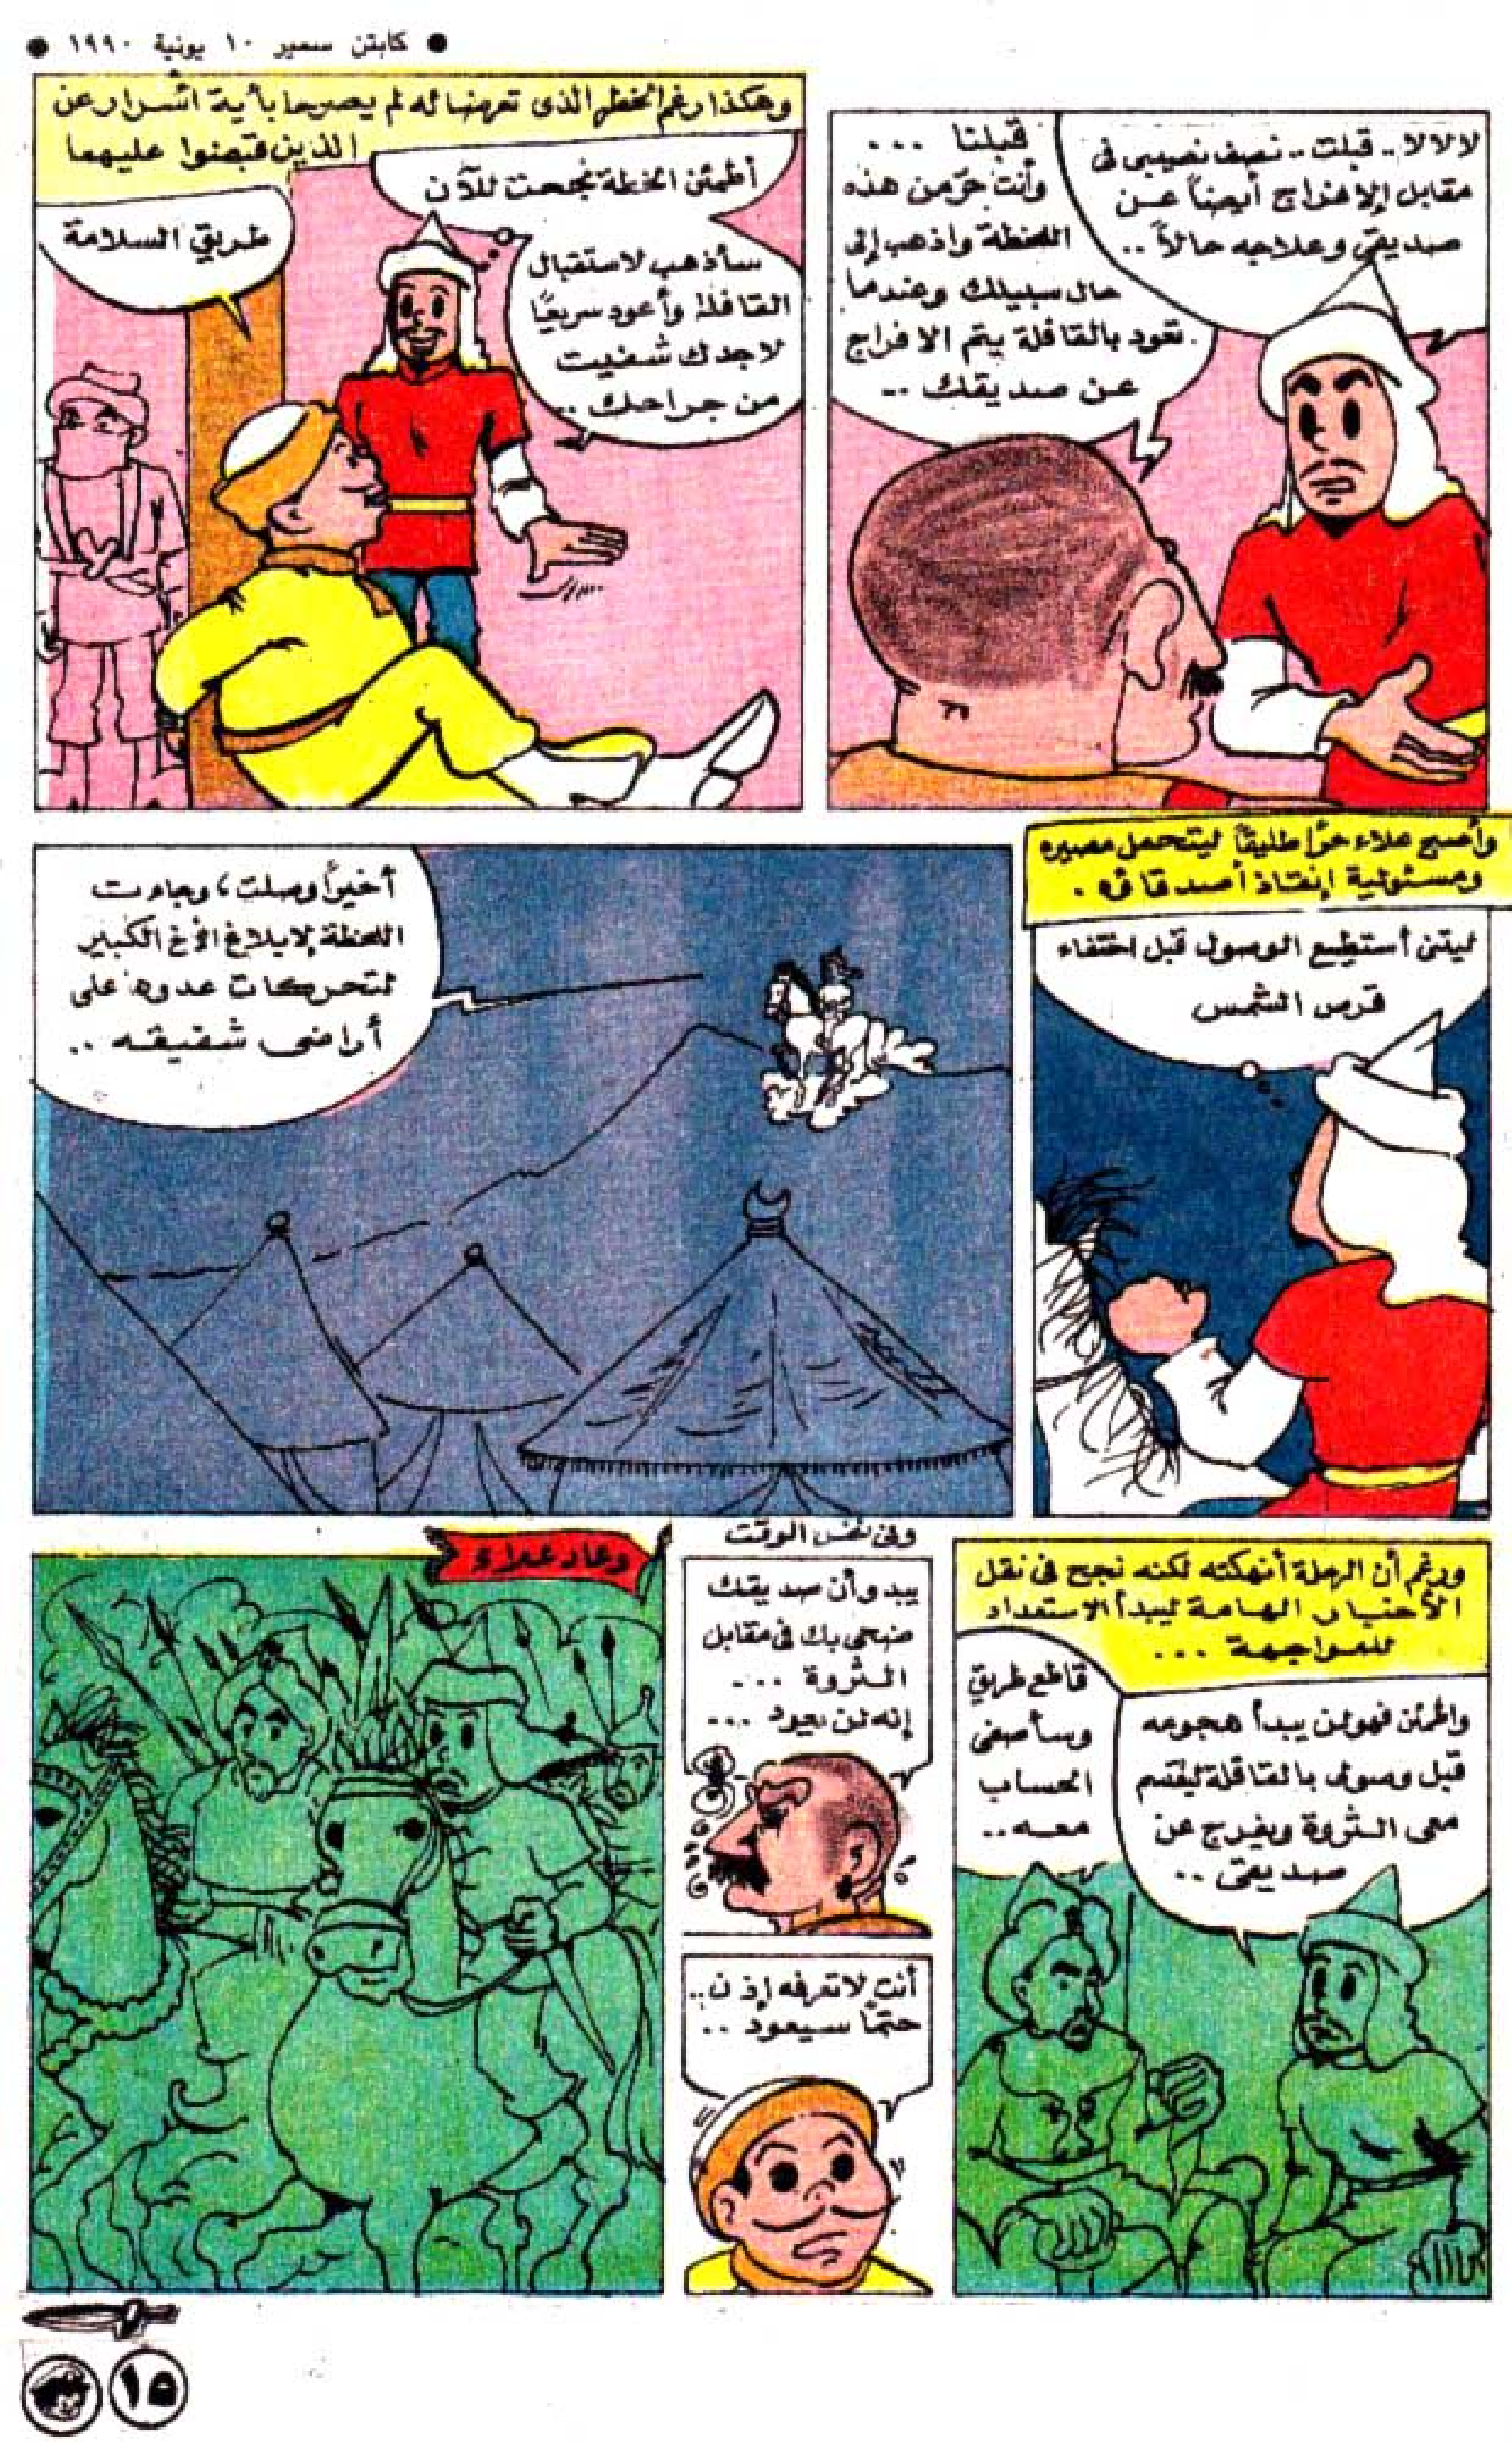 ● كابتن سمير ١٠ يونية ١٩٩٠ ●
لالالا .. قبلت .. نصف نصيبى فى
مقابل الإفراج أيضاً عن
صديقى وعلاجه حالاً ..
قبلنا ...
وأنت حرّ من هذه
اللحظة واذهب إلى
حال سبيلك وعندما
تعود بالقافلة يتم الافراج
عن صديقك ..
وهكذا رغم الخطر الذى تعرضا له لم يصرحا بأية أسرار عن
الذين قبضوا عليهما
أطمئن الخطة نجحت للآن
سأذهب لاستقبال
القافلة وأعود سريعًا
لاجدك شفيت
من جراحك ..
طريق السلامة
وأصبح علاء حرًا طليقًا ليتحمل مصيره
ومسئولية إنقاذ أصدقائه .
ليتنى أستطيع الوصول قبل اختفاء
قرص الشمس
أخيرًا وصلت ، وجاءت
اللحظة لإبلاغ الأخ الكبير
لتحركات عدوه على
أراضى شقيقه ..
ورغم أن الرحلة أنهكته لكنه نجح فى نقل
الأخبار الهامة ليبدأ الاستعداد
للمواجهة ...
واطمئن فهو لن يبدأ هجومه
قبل وصولى بالقافلة ليقسم
معى الثروة ويفرج عن
صديقى ..
قاطع طريق
وسأصفى
الحساب
معه ..
وفى نفس الوقت
يبدو أن صديقك
ضحى بك فى مقابل
الثروة ...
إنه لن يعود ...
أنت لا تعرفه إذن ..
حتمًا سيعود ..
وعاد علاء
١٥